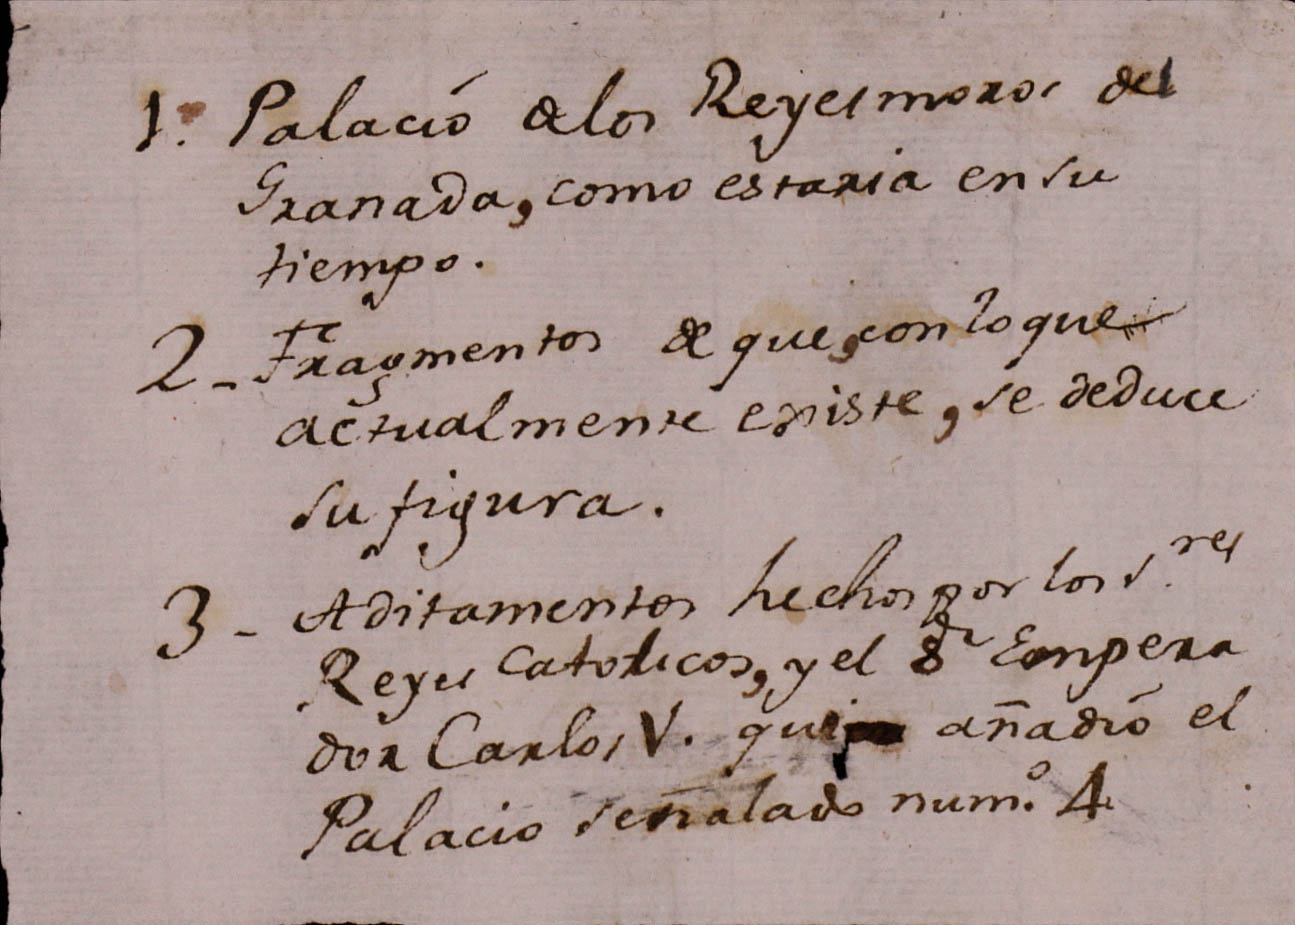 1. Palació de los Reyes moros de
Granada, como estaria en su
tiempo.
2 - Fragmentos de que, con lo que
actualmente existe, se deduce
su figura.
3 - Aditamentos hechos por los S.res
Reyes Catolicos, y el Sr Empera
dor Carlos V. añadió el
Palacio señalado num.o 4